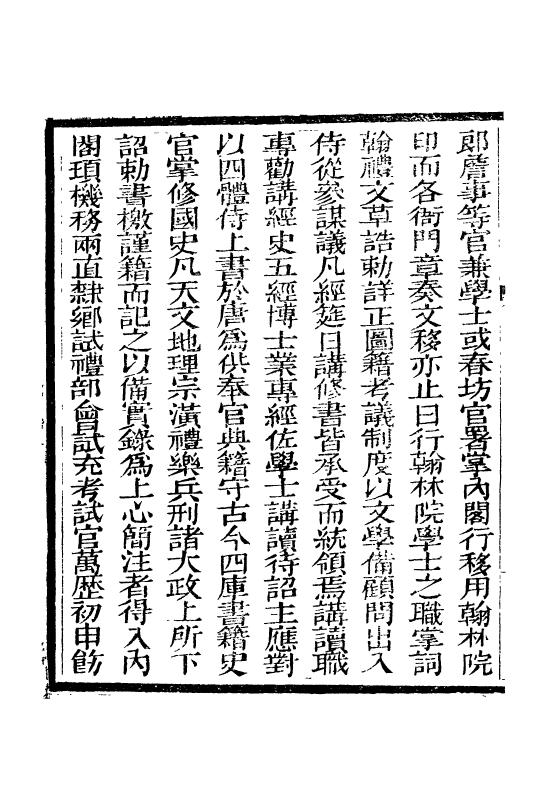 郎詹事等官兼學士或春坊官署掌內閣行移用翰林院
印而各衙門章奏文移亦止曰行翰林院學士之職掌詞
翰禮文草誥勅詳正圖籍考議制度以文學備顧問出入
侍從參謀議凡經筵日講修書皆承受而統領焉講讀職
專勸講經史五經博士業專經佐學士講讀待詔主應對
以四體侍上書於唐爲供奉官典籍守古今四庫書籍史
官掌修國史凡天文地理宗潢禮樂兵刑諸大政上所下
詔勅書檄謹籍而記之以備實錄爲上心簡注者得入內
閣頊機務兩直隸鄉試禮部會試充考試官萬歷初申飭